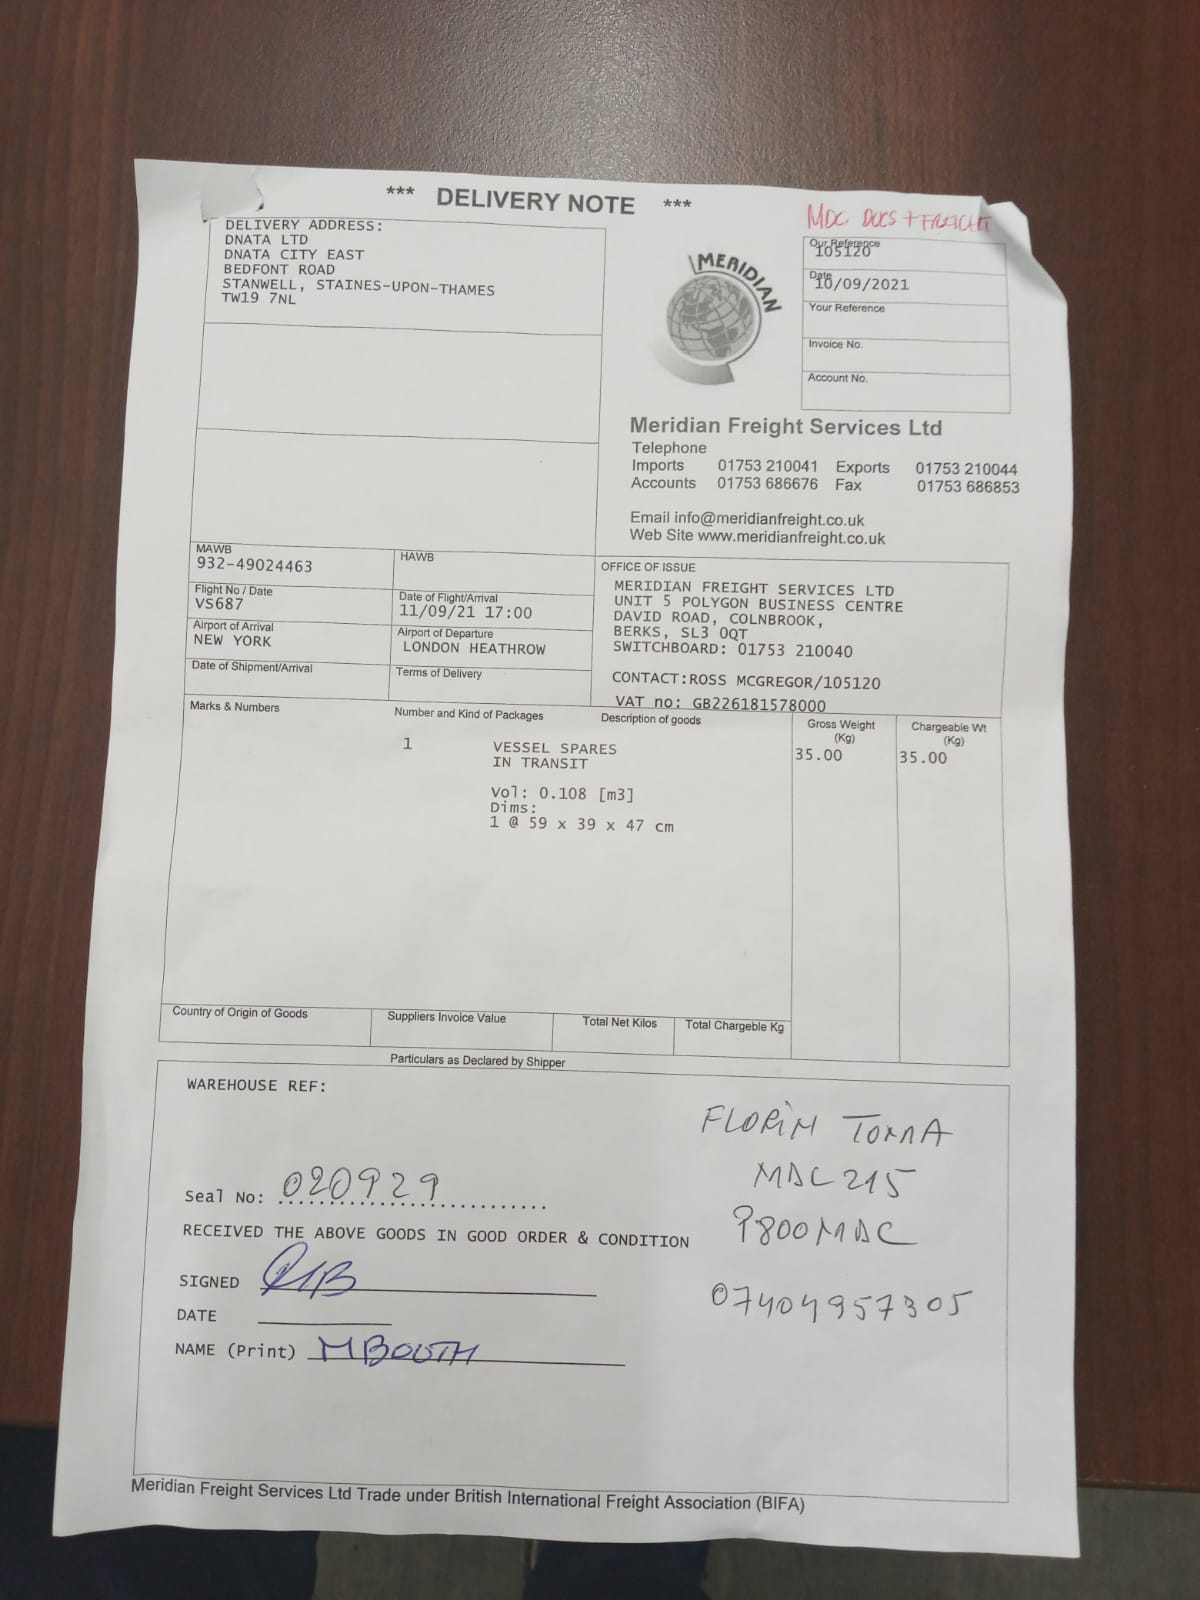 *** DELIVERY NOTE ***
MDC DOCS + FREIGHT
DELIVERY ADDRESS:
DNATA LTD
DNATA CITY EAST
BEDFONT ROAD
STANWELL, STAINES-UPON-THAMES
TW19 7NL
MERIDIAN
Our Reference
105120
Date
10/09/2021
Your Reference
Invoice No.
Account No.
Meridian Freight Services Ltd
Telephone
Imports 01753 210041 Exports 01753 210044
Accounts 01753 686676 Fax 01753 686853
Email info@meridianfreight.co.uk
Web Site www.meridianfreight.co.uk
MAWB
932-49024463
HAWB
Flight No / Date
VS687
Date of Flight/Arrival
11/09/21 17:00
Airport of Arrival
NEW YORK
Airport of Departure
LONDON HEATHROW
Date of Shipment/Arrival
Terms of Delivery
OFFICE OF ISSUE
MERIDIAN FREIGHT SERVICES LTD
UNIT 5 POLYGON BUSINESS CENTRE
DAVID ROAD, COLNBROOK,
BERKS, SL3 0QT
SWITCHBOARD: 01753 210040
CONTACT:ROSS MCGREGOR/105120
VAT no: GB226181578000
Marks & Numbers
Number and Kind of Packages
Description of goods
Gross Weight
(Kg)
Chargeable Wt
(Kg)
1
VESSEL SPARES
IN TRANSIT
35.00
35.00
Vol: 0.108 [m3]
Dims:
1 @ 59 x 39 x 47 cm
Country of Origin of Goods
Suppliers Invoice Value
Total Net Kilos
Total Chargeble Kg
Particulars as Declared by Shipper
WAREHOUSE REF:
FLORIN
MDC 215
P800MDC
07404957305
Seal No: 020929
RECEIVED THE ABOVE GOODS IN GOOD ORDER & CONDITION
SIGNED
DATE
NAME (Print) M BOOTH
Meridian Freight Services Ltd Trade under British International Freight Association (BIFA)